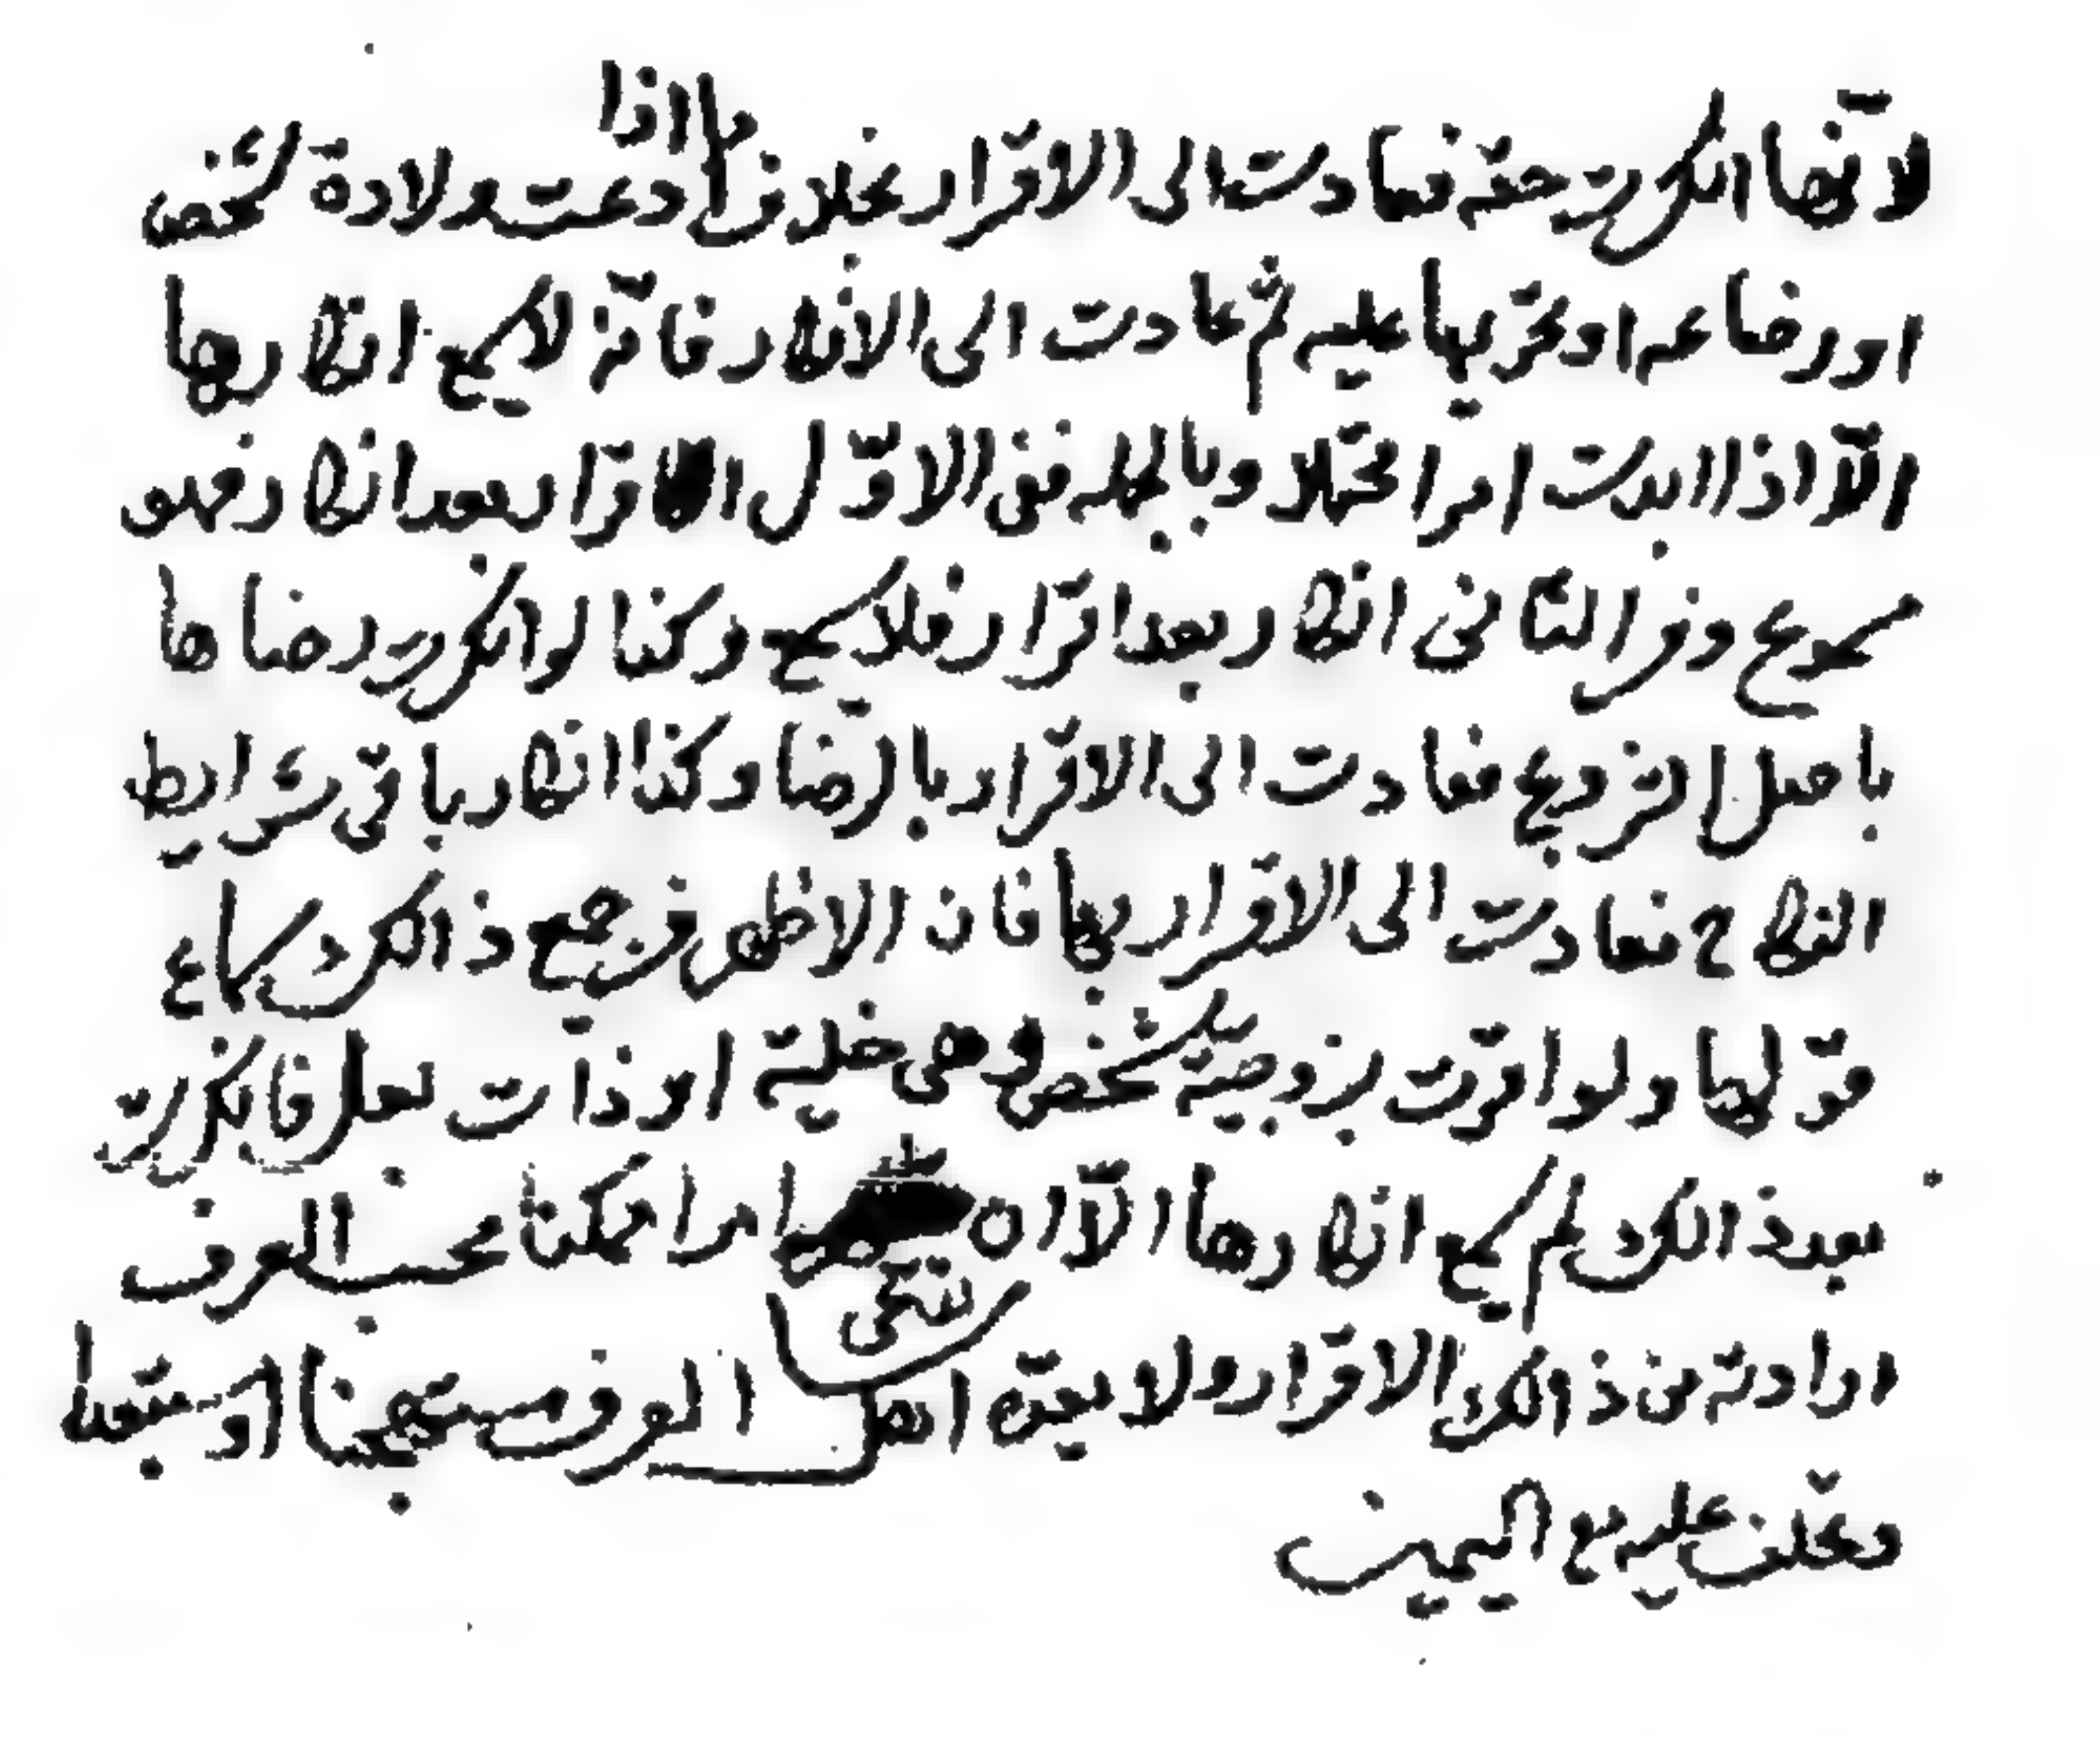 لانّها انكرت حقّه فعادت الى الاقرار بخلاف ما اذا ادعت ولادة شخص
او رضاعه او تحريمها عليه ثم عادت الى الانكار فانّه لا يسمع انكارها
الّا اذا ابدت امرا محتملا وبالجمله ففى الاوّل اقرار بعد انكار فهو
مسموع وفى الثانى انكار بعد اقرار فلا يسمع وكذا لو انكرت رضاها
باصل التزويج فعادت الى الاقرار بالرّضا وكذا انكار باقى شرايط
النكاح فعادت الى الاقرار بها فان الاظهر فى جميع ذالك سماع
قولها ولو اقرّت بزوجيّة شخص وهى خليّة او ذات بعل فانكرت
بعد ذالك لم يسمع انكارها الّا ان تدّعى امرا ممكنا بحسب العرف
ارادته من ذالك الاقرار ولا يعدّه اهل العرف مستهجنا او مستبعدا
وتحلف عليه مع اليمين